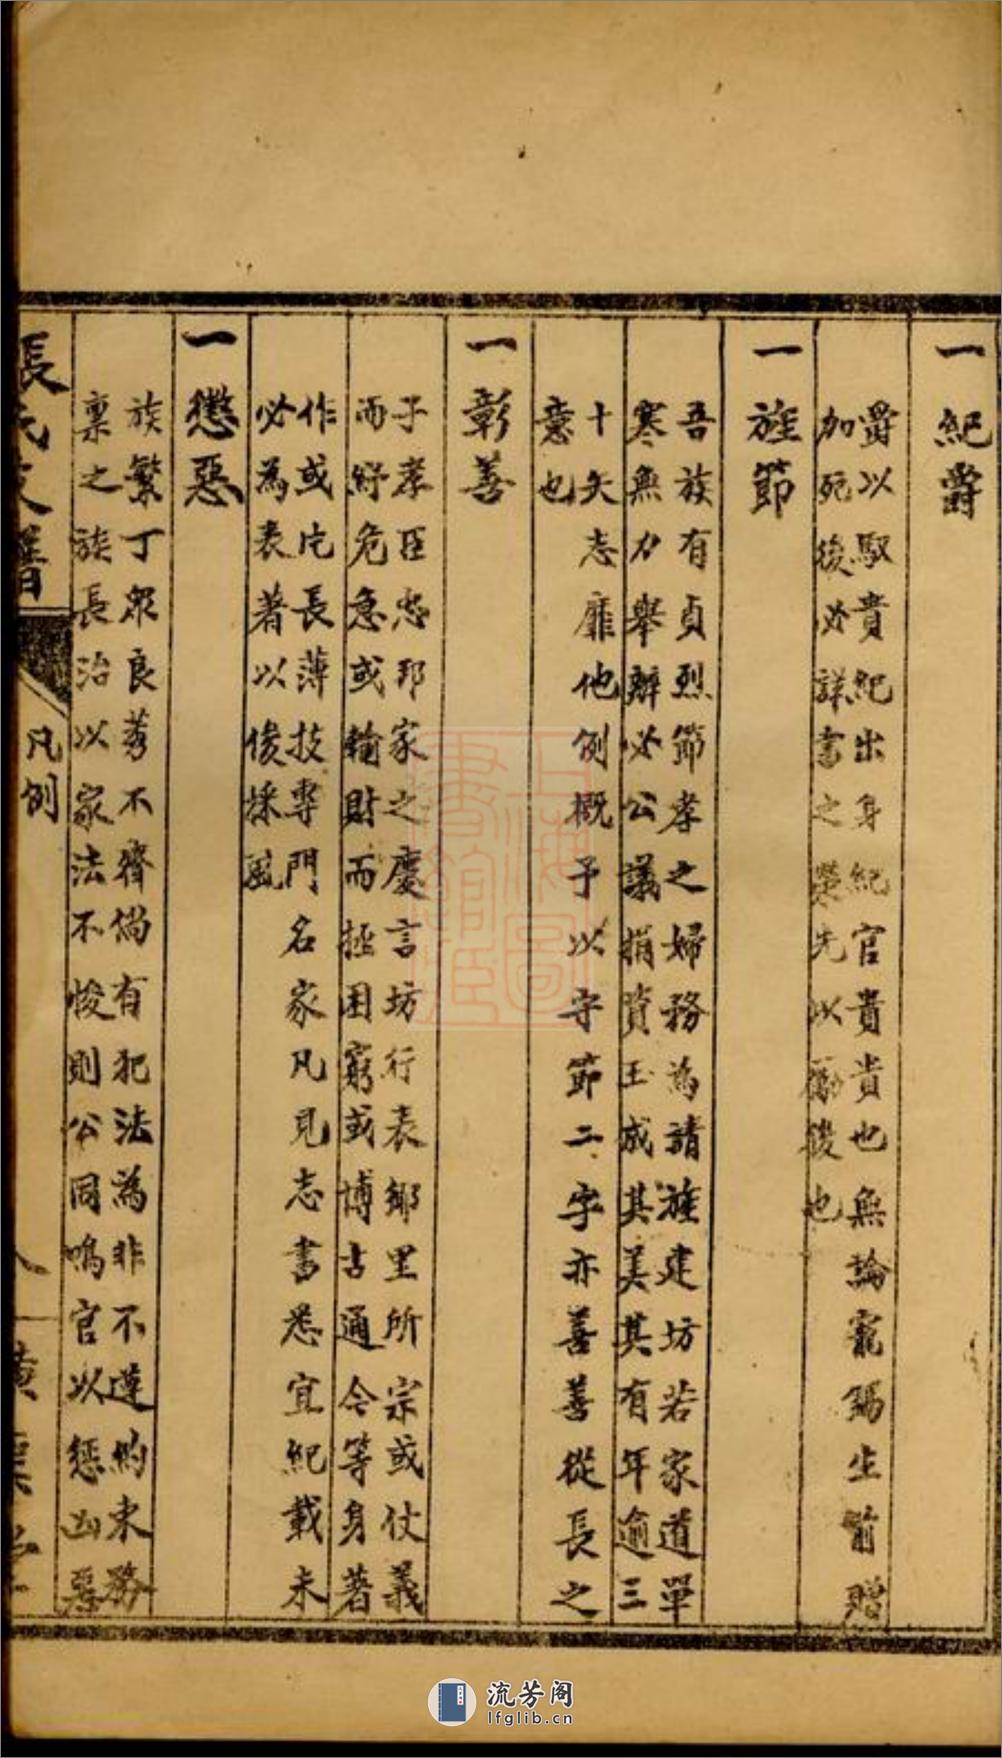 一紀爵
爵以馭貴紀出身紀官貴貴也無論寵錫生前贈
加死後必詳書之榮先以勵後也
一旌節
吾族有貞烈節孝之婦務為請旌建坊若家道單
寒無力舉辦必公議捐貲玉成其美其有年逾三
十矢志靡他例概予以守節二字亦善善從長之
意也
一彰善
子孝臣忠邦家之慶言坊行表鄉里所宗或仗義
而紓危急或輸財而拯困窮或博古通今等身著
作或片長薄技專門名家凡見志書悉宜紀載未
必為表著以俟採風
一懲惡
族繁丁眾良莠不齊倘有犯法為非不遵約束務
稟之族長治以家法不悛則公同鳴官以懲凶惡
張氏支譜
凡例
上海圖書館藏
流芳阁
lfglib.cn